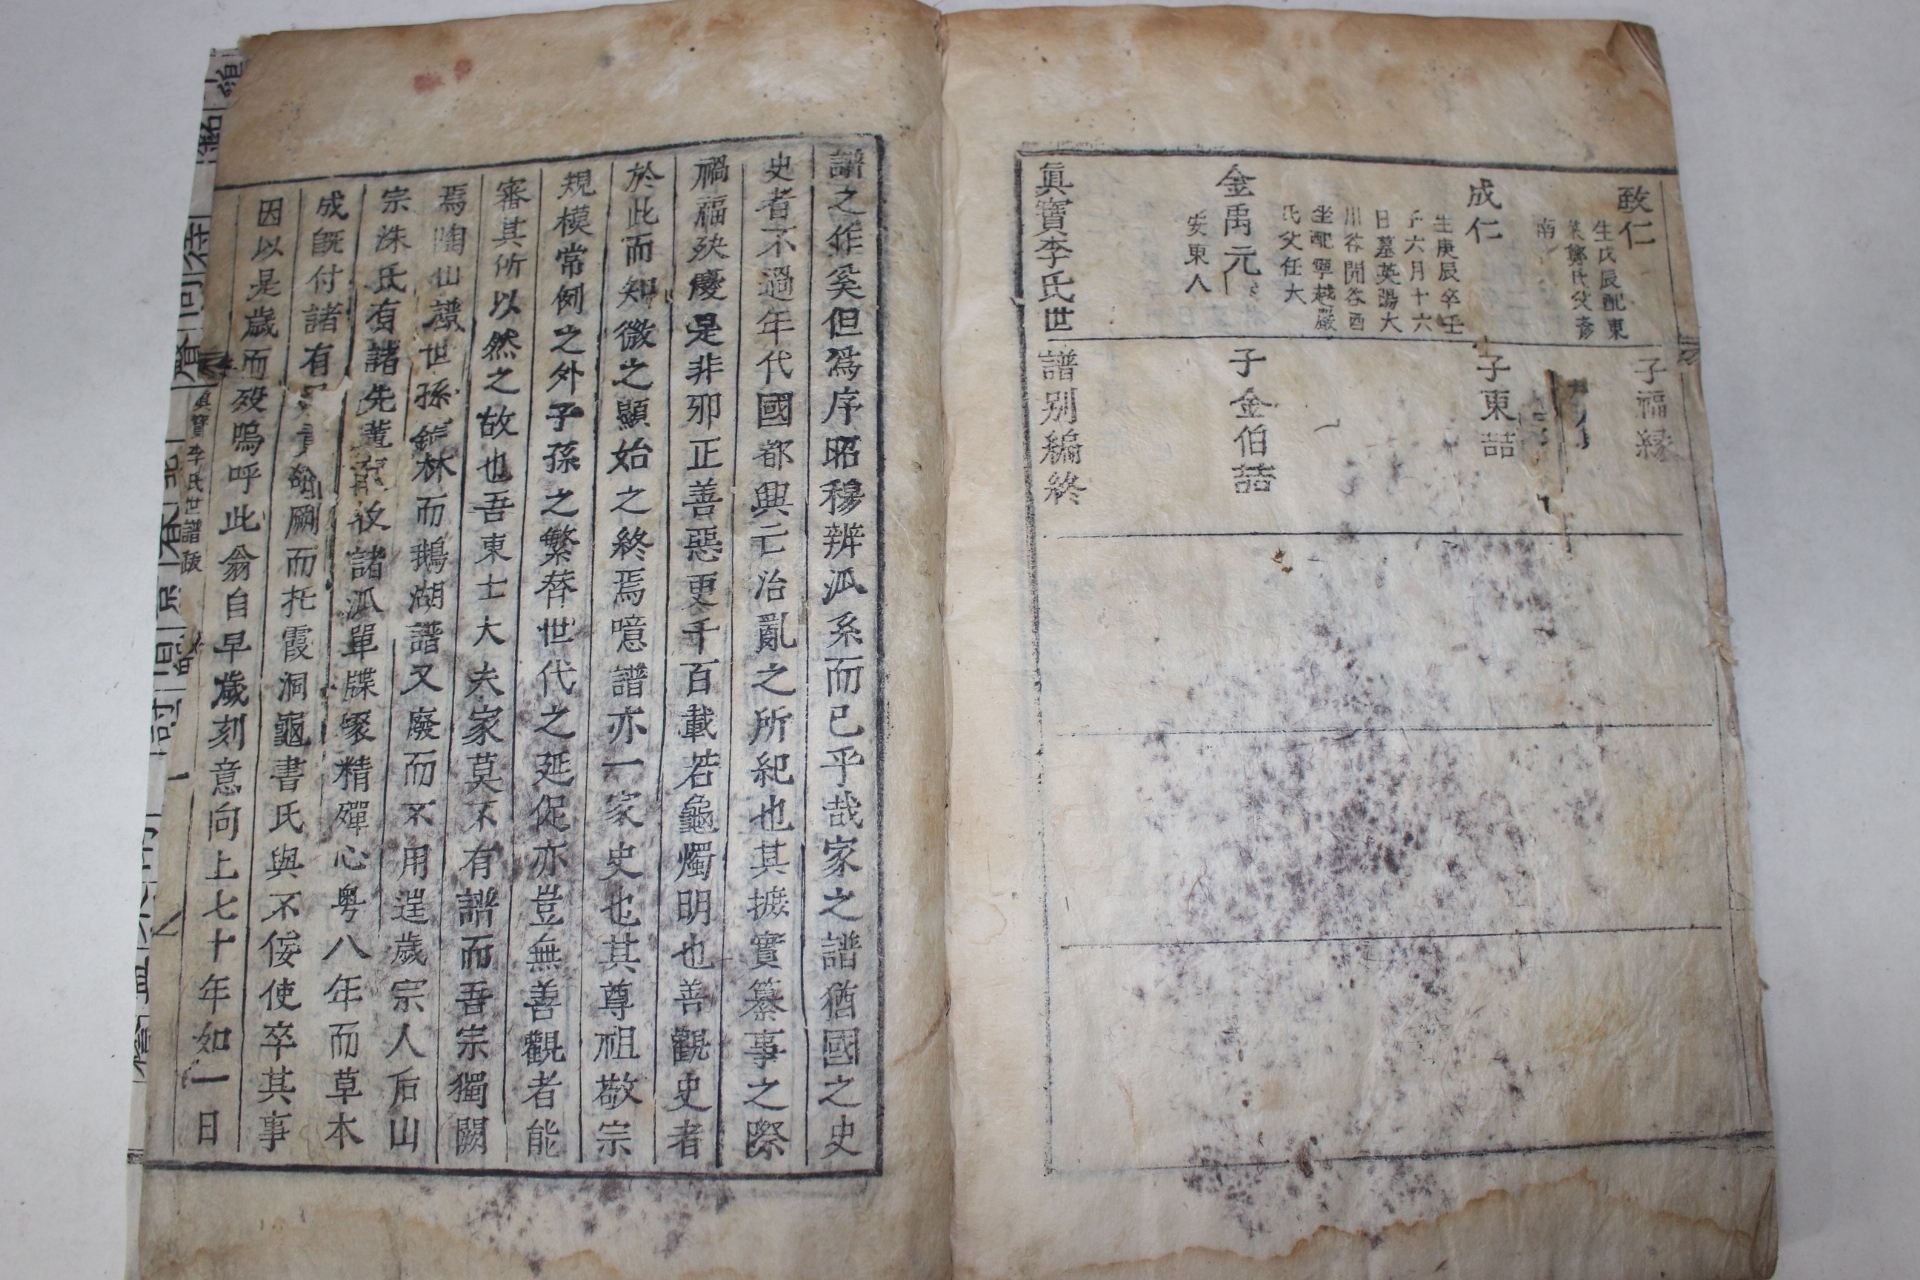 致仁
生戊辰配東
萊鄭氏父彥
南
子福緣
成仁
生庚辰卒壬
子六月十六
日墓英陽大
川谷開谷酉
坐配寧越嚴
氏父任大
子東喆
金禹元
安東人
子金伯喆
眞寶李氏世譜別編終
譜之作奚但爲序昭穆辨派系而已乎哉家之譜猶國之史
史者不過年代國都興亡治亂之所紀也其摭實纂事之際
禍福殃慶是非邪正善惡更千百載若龜燭明也善觀史者
於此而知微之顯始之終焉噫譜亦一家史也其尊祖敬宗
規模常例之外子孫之繁替世代之延促亦豈無善觀者能
審其所以然之故也吾東士大夫家莫不有譜而吾宗獨闕
焉陶山譜世孫鍼林而鵝湖譜又廢而不用逞歲宗人后山
宗洙氏有諸先輩 諸派單牒聚精殫心粤八年而草本
成旣付諸有 厥而托霞洞龜書氏與不佞使卒其事
因以是歲而歿嗚呼此翁自早歲刻意向上七十年如一日
眞寶李氏世譜跋